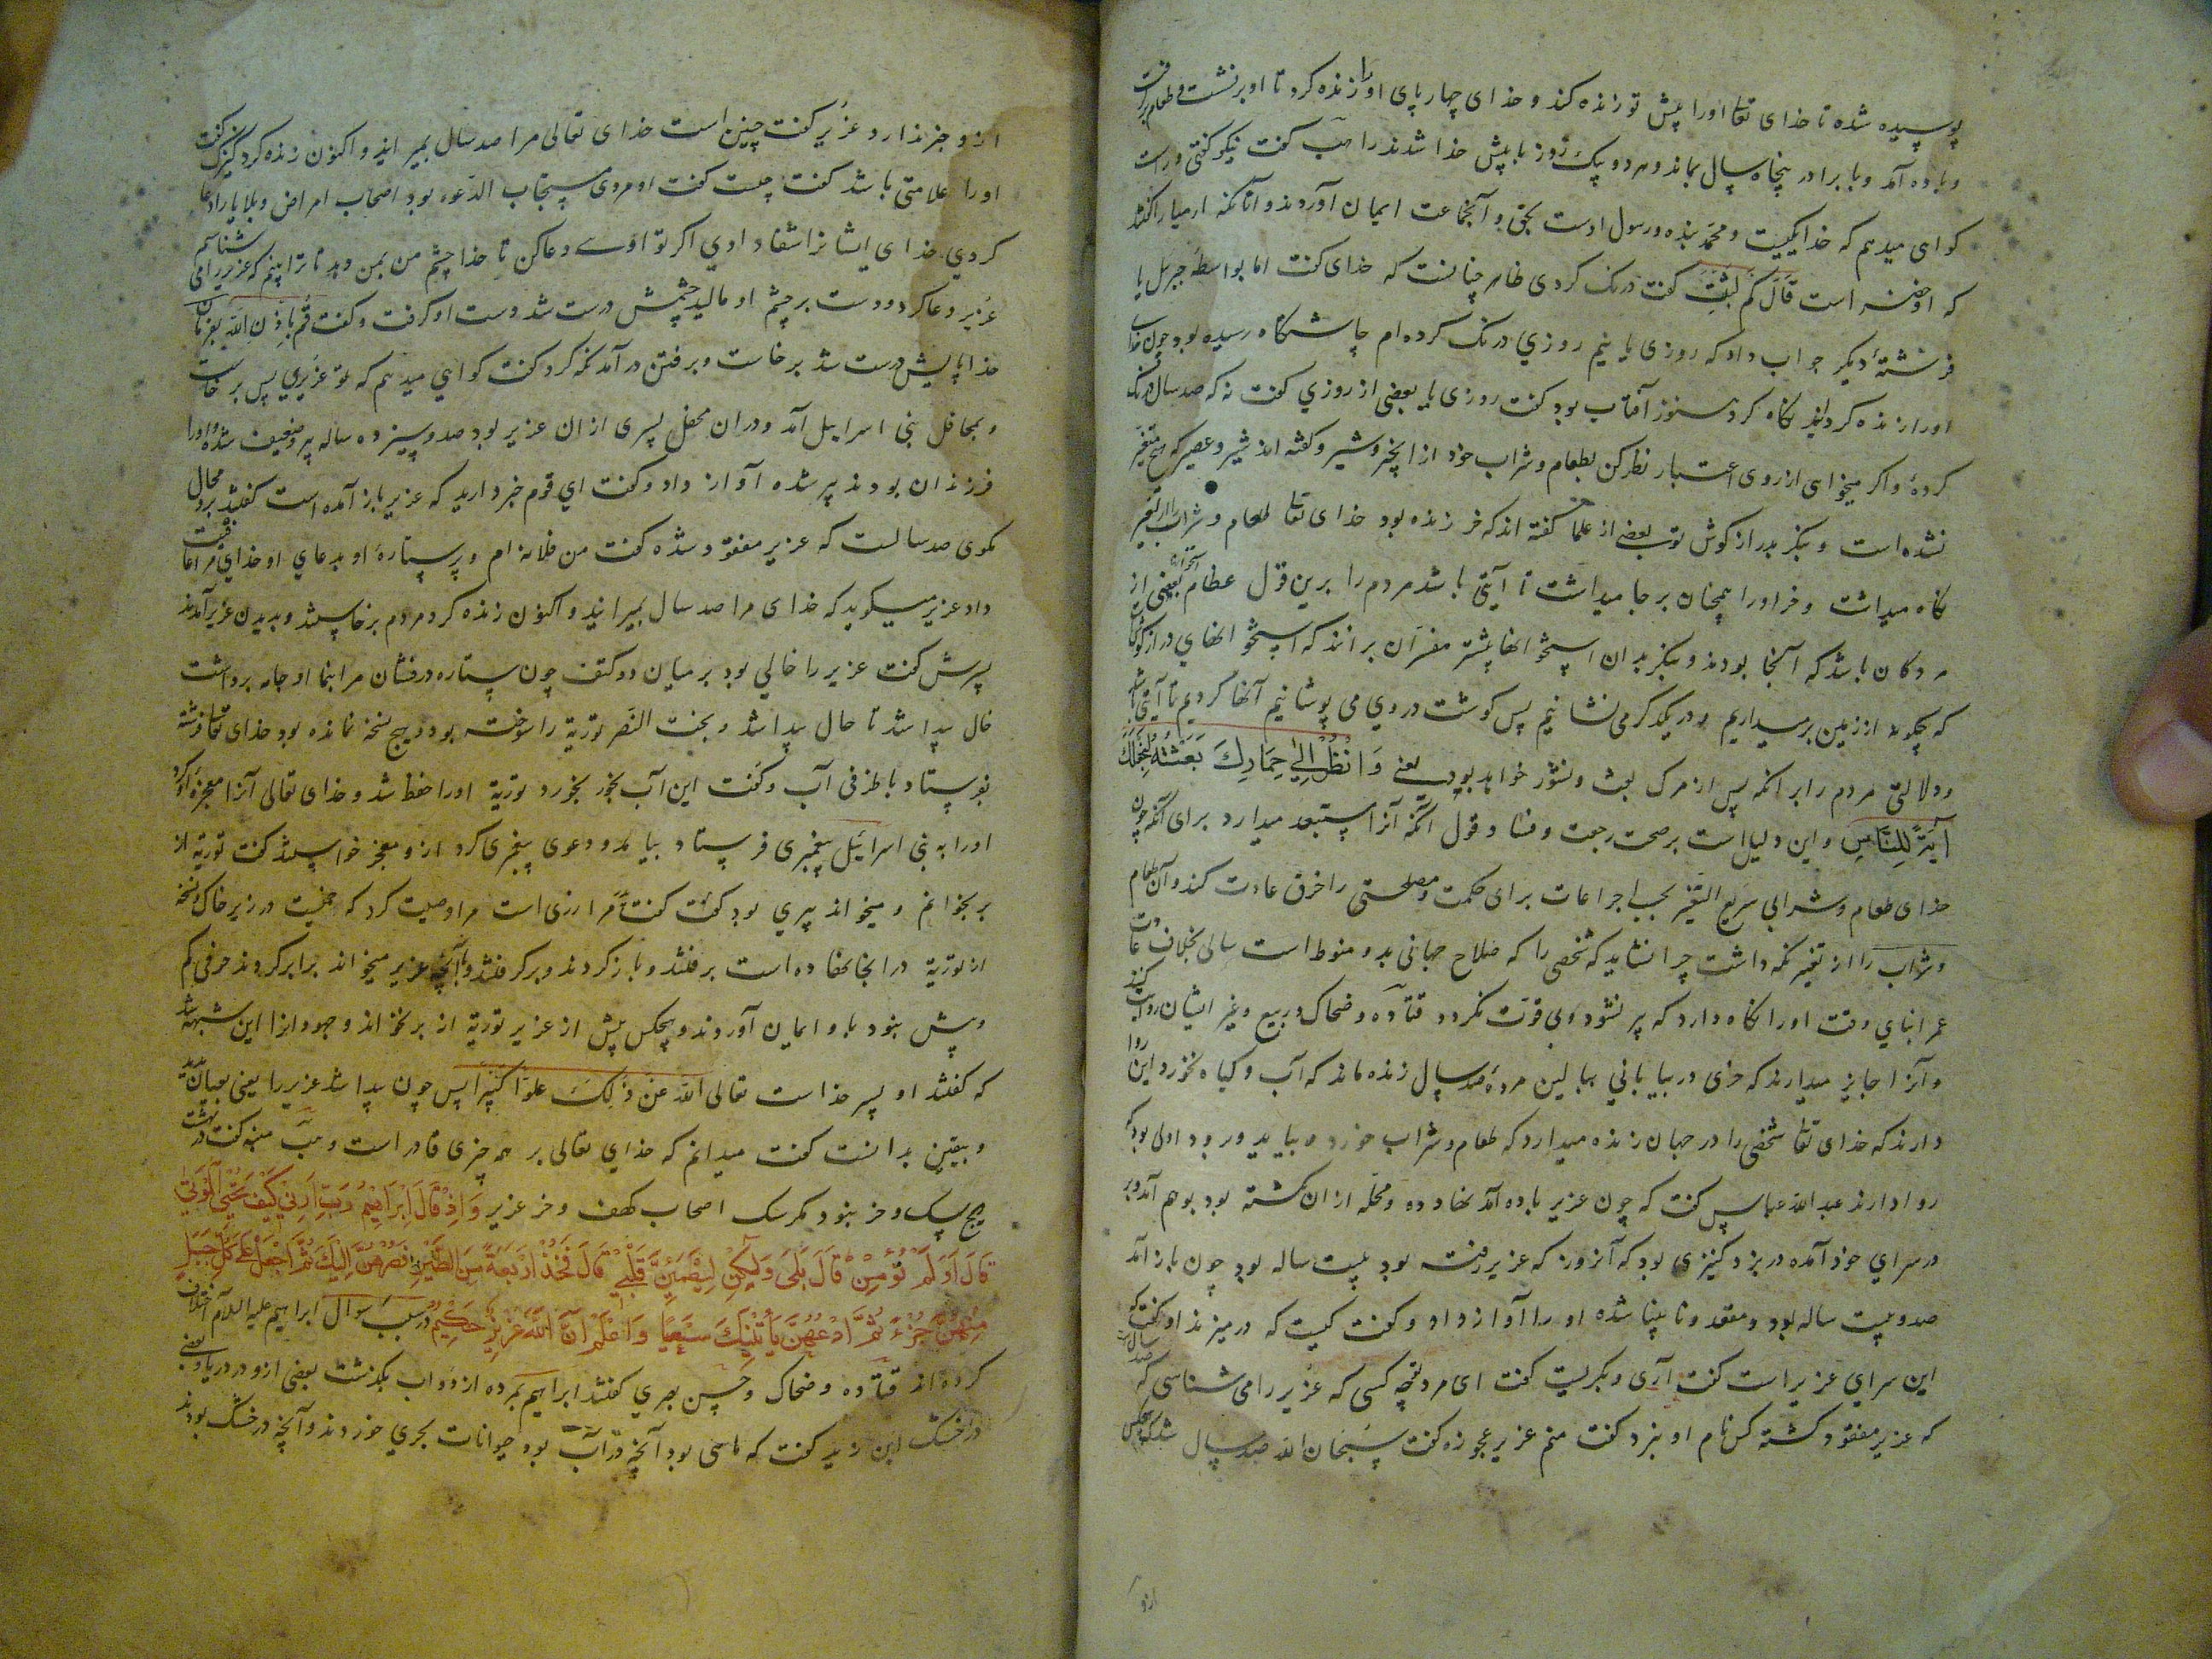 پوسیده شده تا خدای تعا اورا پیش تو زنده کند و خدای چهارپای او را زنده کرد تا او برنشست و طعام برگرفت
و باده آمد و با برادر پنجاه سال بماند و هر دو یک روز با پیش خدا شدند راهب کفت نیکو کفتی و راست
کواهی میدهم که خدا یکیست و محمد بنده و رسول اوست بحق و آنجماعت ایمان آوردند و آنانکه ارمیا را کفتند
که او خضر است قَالَ كَمْ لَبِثْتَ کفت درنک کردی ظاهر چنانست که خدای کفت اما بواسطه جبرئیل یا
فرشتهٔ دیکر جواب داد که روزی یا نیم روزی درنک کرده‌ام چاشتکاه رسیده بود چون
اورا زنده کردانید نکاه کرد هنوز آفتاب بود کفت روزی یا بعضی از روزی کفت نه که صد سال درنک
کردهٔ و اکر میخواهی از روی اعتبار نظر کن بطعام و شراب خود از انجیر و شیر و کفته اند شیر و عصیر که هیچ متغیر
نشده است و بنکر بدراز کوش تو بعضی از علما کفته اند که خر زنده بود خدای تعا طعام و شراب را از تغیر
نکاه میداشت و خر اورا همچنان برجا میداشت تا آیتی باشد مردم را برین قول عظام استخوان بعضی از
مردکان باشد که آنجا بودند و بنکر بدان استخوانها بیشتر مفسران برانند که استخوانهای درازکوش
که چکونه از زمین برمیداریم و در یکدکر می نشانیم پس کوشت در وی می پوشانیم آنها کردیم تا آیتی باشد
و دلالتی مردم را بر آنکه پس از مرک بعث و نشور خواهد بود یعنی وَانْظُرْ اِلٰی حِمَارِكَ بَعَثْتُهُ لِنَجْعَلَكَ
آیَةً لِلنَّاسِ و این دلیل است بر صحت رجعت و فنا و قول آنکه آنرا مستبعد میدارد برای آنکه چون
خدای طعام و شرابی سریع التغیر بحسب اجراء عادات برای حکمت و مصلحتی را خرق عادت کند و آن طعام
و شراب را از تغیر نکه داشت چرا نشاید که شخصی را که صلاح جهانی بدو منوط است سالی بخلاف عادت
عمر ابنای وقت اورا نکاه دارد که پیر نشود و بی قوت نکردد قتاده و ضحاک و ربیع و غیر ایشان روایت کنند
و آنرا جایز میدارند که خری در بیابانی ببالین مردهٔ صد سال زنده ماند که آب و کیاه نخورد این روا
دارند که خدای تعا شخصی را در جهان زنده میدارد که طعام و شراب خورده بیاید و رود اولی بود که
روا دارند عبدالله عباس کفت که چون عزیر باده آمد نهاد ده و محله از آن کشته بود بوهم آمد و بر
در سرای خود آمده در بزد کنیزی بود که آنروز که عزیر رفته بود بیست ساله بود چون باز آمد
صد و بیست ساله بود و مقعد و نابینا شده او را آواز داد و کفت کیست که در میزند او کفت که
این سرای عزیر است کفت آری و بکریست کفت ای مرد توچه کسی که عزیر را می شناسی که صد سال
که عزیر مفقود کشته کس نام او نبرد کفت منم عزیر عجوزه کفت سبحان الله صد سال شد که کس
ازو
ازو خبر ندارد عزیر کفت چنین است خدای تعالی مرا صد سال بمیرانید و اکنون زنده کرد کنیزک کفت
اورا علامتی باشد کفت چیست کفت او مردی مستجاب الدعوه بود اصحاب امراض و بلایا را دعا
کردی خدای ایشانرا شفا دادی اکر تو اوے دعا کن تا خدا چشم من بمن دهد تا ترا بینم که عزیر را می شناسم
عزیر دعا کرد و دست بر چشم او مالید چشمش درست شد و دست او کرفت و کفت قُمْ بِاِذْنِ اللهِ بفرمان
خدا پایش درست شد برخاست و برفتن در آمد نکه کرد کفت کواهی میدهم که تو عزیری پس برخاست
و بمحافل بنی اسرائیل آمد و در آن محفل پسری از آن عزیر بود صد و سیزده ساله پیر و ضعیف شده و اورا
فرزندان بودند پیر شده آواز داد و کفت ای قوم خبر دارید که عزیر باز آمده است کفتند برو محال
مکوی صد سالست که عزیر مفقود شده کفت من فلانه ام و پرستارهٔ او بدعای او خدای مرا عافیت
داد عزیر میکوید که خدای مرا صد سال بمیرانید و اکنون زنده کرد مردم برخاستند و بدیدن عزیر آمدند
پسرش کفت عزیر را خالی بود بر میان دو کتف چون ستاره درفشان مرا بنما او جامه برداشت
خال پیدا شد تا حال پیدا شد و بخت النصر توریة را سوخته بود و هیچ نسخه نمانده بود خدای تعا فرشته
بفرستاد با ظرفی آب و کفت این آب بخور بخورد توریة اورا حفظ شد و خدای تعالی آنرا معجزهٔ او کرد
اورا به بنی اسرائیل پیغمبری فرستاد بیامد و دعوی پیغمبری کرد ازو معجز خواستند کفت توریة از
بر بخوانم و میخواند پیری بود کفت مرا رزی است مرا وصیت کرد که خمیست در زیر خاک و نسخه
از توریة در آنجا نهاده است برفتند و باز کردند و برکرفتند و با آنچه عزیر میخواند برابر کردند حرفی کم
و بیش نبود باو ایمان آوردند و هیچکس پیش از عزیر توریة از بر نخواند و جهودانرا این شبهه شد
که کفتند او پسر خداست تعالی الله عَنْ ذٰلِكَ عُلُوًّا كَبِیرًا پس چون پیدا شد عزیر را یعنی بعیان بدید
و بیقین بدانست کفت میدانم که خدای تعالی بر همه چیزی قادر است وهب منبه کفت در بهشت
هیچ سک و خر نبود مکر سک اصحاب کهف و خر عزیر وَاِذْ قَالَ اِبْرَاهِیمُ رَبِّ اَرِنِی كَیْفَ تُحْیِی الْمَوْتٰی
قَالَ اَوَلَمْ تُؤْمِنْ قَالَ بَلٰی وَلٰكِنْ لِیَطْمَئِنَّ قَلْبِی قَالَ فَخُذْ اَرْبَعَةً مِنَ الطَّیْرِ فَصُرْهُنَّ اِلَیْكَ ثُمَّ اجْعَلْ عَلٰی كُلِّ جَبَلٍ
مِنْهُنَّ جُزْءً ثُمَّ ادْعُهُنَّ یَأْتِینَكَ سَعْیًا وَاعْلَمْ اَنَّ اللّٰهَ عَزِیزٌ حَكِیمٌ در سبب سوال ابراهیم علیه السلام اختلاف
کرده اند قتاده و ضحاک و حسن بصری کفتند ابراهیم بمرده از دواب بکذشت بعضی ازو در دریا و بعضی
در خشک ابن زید کفت که ماهی بود آنچه در آب بود حیوانات بحری خوردند و آنچه در خشک بود